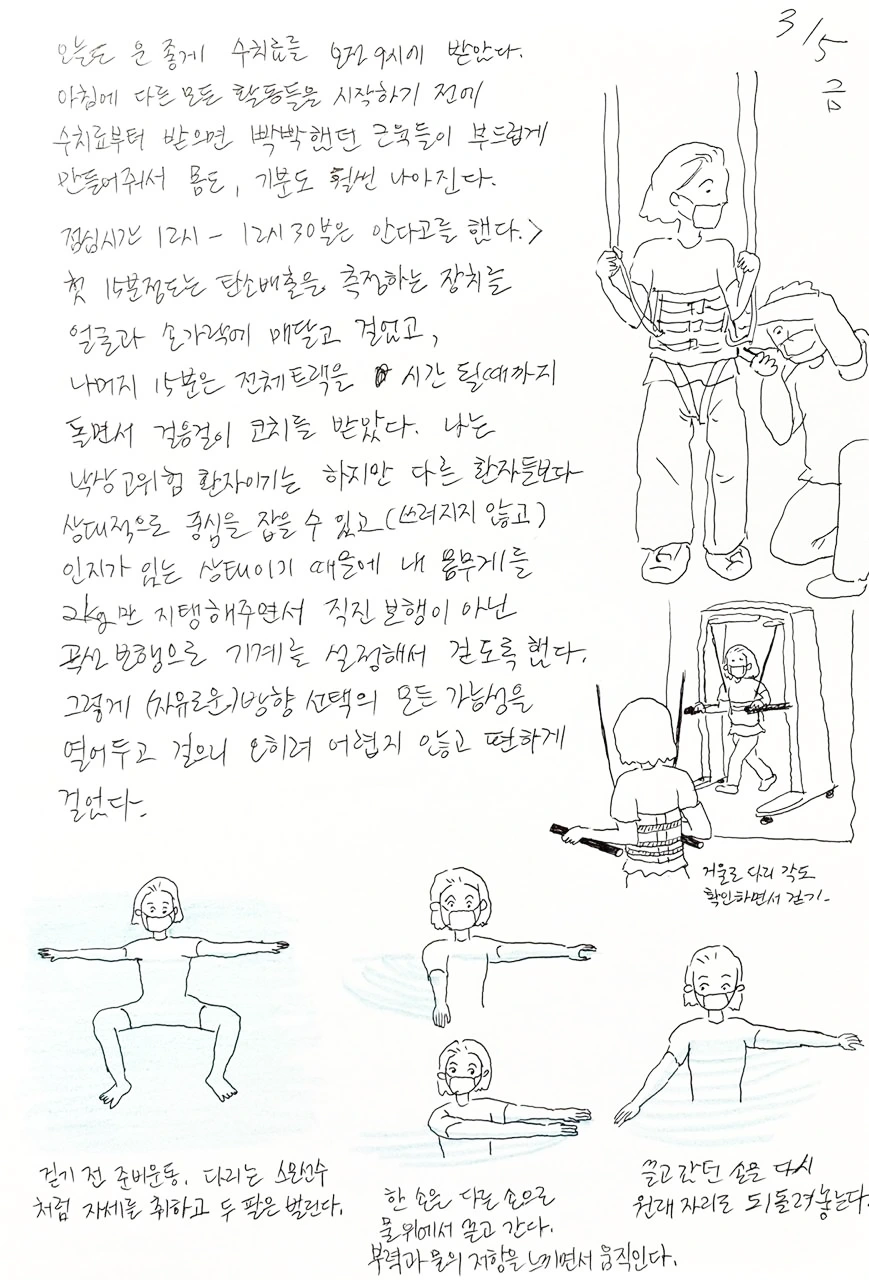 3/5
금
오늘도 운 좋게 수치료를 오전 9시에 받았다.
아침에 다른 모든 활동들을 시작하기 전에
수치료부터 받으면 빡빡했던 근육들이 부드럽게
만들어줘서 몸도, 기분도 훨씬 나아진다.
점심시간 12시 - 12시 30분은 안다고를 했다.>
첫 15분정도는 탄소배출을 측정하는 장치를
얼굴과 손가락에 매달고 걸었고,
나머지 15분은 전체트랙을 시간 될때까지
돌면서 걸음걸이 코치를 받았다. 나는
낙상고위험 환자이기는 하지만 다른 환자들보다
상대적으로 중심을 잡을 수 있고(쓰러지지 않고)
인지가 있는 상태이기 때문에 내 몸무게를
2kg만 지탱해주면서 직진 보행이 아닌
곡선 보행으로 기계를 설정해서 걷도록 했다.
그렇게 (자유로운)방향 선택의 모든 가능성을
열어두고 걸으니 오히려 어렵지 않고 편하게
걸었다-
거울로 다리 각도
확인하면서 걷기-
걷기 전 준비운동. 다리는 스모선수
처럼 자세를 취하고 두 팔은 벌린다.
한 손은 다른 손으로
물위에서 끌고 간다.
부력과 물의 저항을 느끼면서 움직인다.
끌고 갔던 손을 다시
원래 자리로 되돌려놓는다.